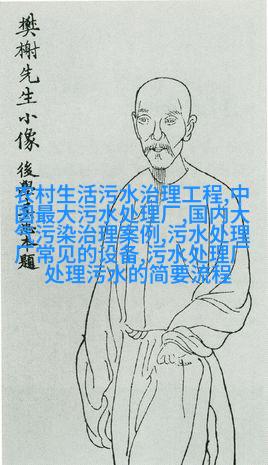 樊榭先生小像
後學本題
农村生活污水治理工程,中
国最大污水处理厂,国内大
气污染治理案例,污水处理
厂常见的设备,污水处理厂
处理污水的简要流程